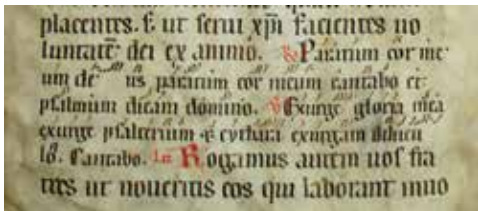 placentes. s; ut serui xp̄i facientes uo
luntatē dei ex animo. R̸ Paratum cor me
um deus paratum cor meum cantabo et
psalmum dicam domino. V̸ Exurge gloria mea
exurge psalterium et cythara exurgam dilucu
lo. Cantabo. Lc̄ Rogamus autem uos fra
tres ut noueritis eos qui laborant inuo